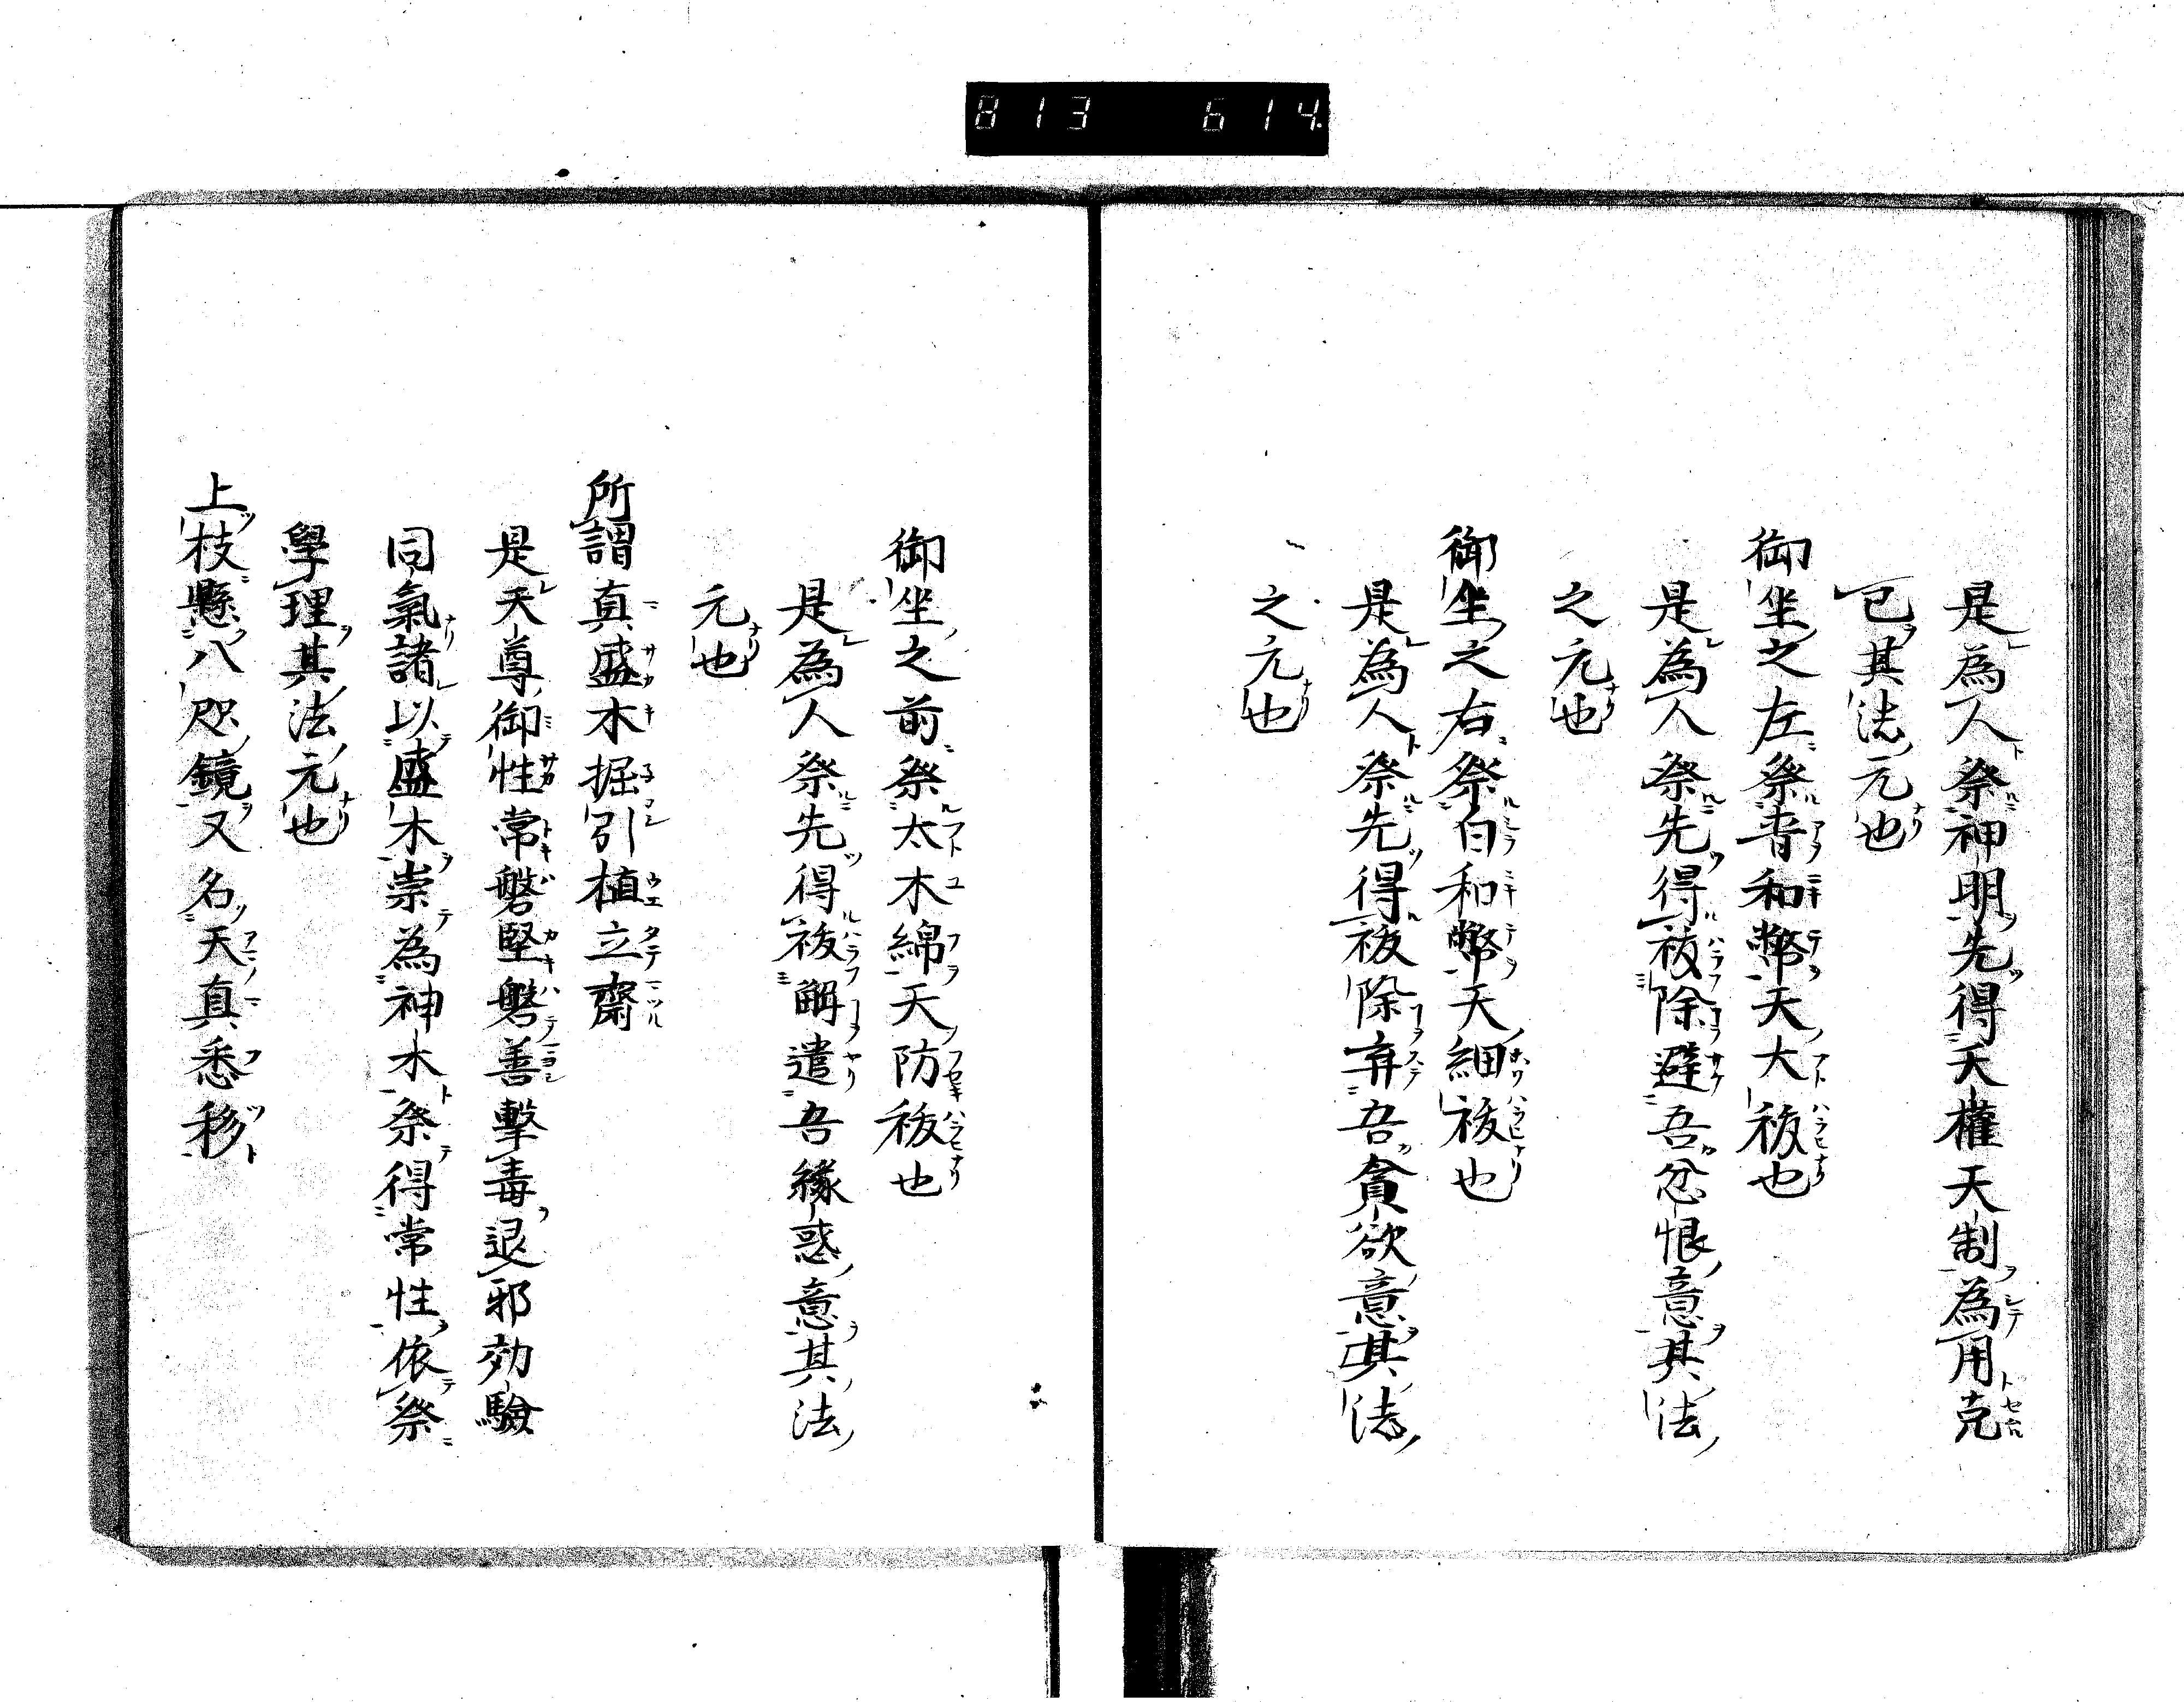 813 614.
是為人祭神明先得天權天制為用克
已其法元也
御坐之左祭青和幣天大祓也
是為人祭先得祓除避吾忿恨意其法
之元也
御坐之右祭白和幣天細祓也
是為人祭先得祓除弃吾貪欲意其法
之元也
御坐之前祭太木綿天防祓也
是為人祭先得祓解遣吾緣惑意其法
元也
所謂真盛木掘引植立齋
是天尊御性常磐堅磐善擊毒退邪効驗
同氣諸以盛木崇為神木祭得常性依祭
學理其法元也
上枝懸八咫鏡又名天真悉移